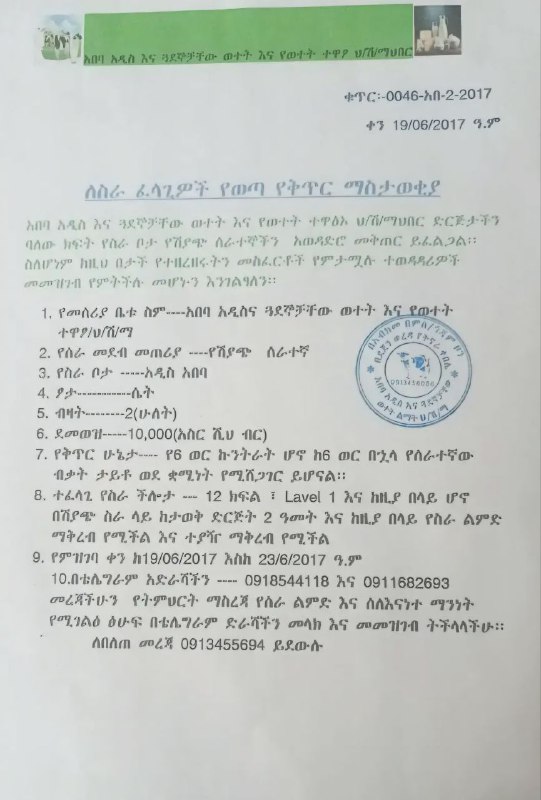 አበባ አዲስ እና ጓደኞቻቸው ወተት እና የወተት ተዋፆ ህ/ሽ/ማህበር
ቁጥር፡-0046-አበ-2-2017
ቀን 19/06/2017 ዓ.ም
ለስራ ፈላጊዎች የወጣ የቅጥር ማስታወቂያ
አበባ አዲስ እና ጓደኞቻቸው ወተት እና የወተት ተዋፅኦ ህ/ሽ/ማህበር ድርጅታችን
ባለው ክፍት የስራ ቦታ የሽያጭ ሰራተኞችን አወዳድሮ መቅጠር ይፈልጋል፡፡
ስለሆነም ከዚህ በታች የተዘረዘሩትን መስፈርቶች የምታሟሉ ተወዳዳሪዎች
መመዝገብ የምትችሉ መሆኑን እንገልፃለን፡፡
1. የመስሪያ ቤቱ ስም----አበባ አዲስና ጓደኞቻቸው ወተት እና የወተት
ተዋፆ/ህ/ሽ/ማ
2. የስራ መደብ መጠሪያ ----የሽያጭ ሰራተኛ
3. የስራ ቦታ -----አዲስ አበባ
4. ፆታ------------ሴት
5. ብዛት--------2(ሁለት)
6. ደመወዝ-----10,000(አስር ሺህ ብር)
7. የቅጥር ሁኔታ---- የ6 ወር ኩንትራት ሆኖ ከ6 ወር በኋላ የሰራተኛው
ብቃት ታይቶ ወደ ቋሚነት የሚሸጋገር ይሆናል፡፡
8. ተፈላጊ የስራ ችሎታ --- 12 ክፍል ፣ Lavel 1 እና ከዚያ በላይ ሆኖ
በሽያጭ ስራ ላይ ከታወቀ ድርጅት 2 ዓመት እና ከዚያ በላይ የስራ ልምድ
ማቅረብ የሚችል እና ተያዥ ማቅረብ የሚችል
9. የምዝገባ ቀን ከ19/06/2017 እስከ 23/6/2017 ዓ.ም
10.በቴሌግራም አድራሻችን ---- 0918544118 እና 0911682693
መረጃችሁን የትምህርት ማስረጃ የስራ ልምድ እና ስለእናንተ ማንነት
የሚገልፅ ፅሁፍ በቴሌግራም ድራሻችን መላክ እና መመዝገብ ትችላላችሁ፡፡
ለበለጠ መረጃ 0913455694 ይደውሉ